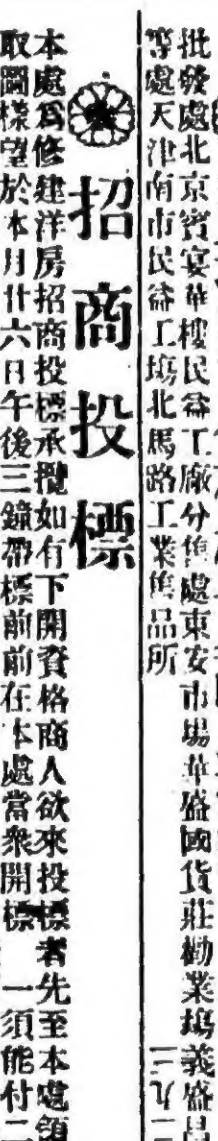 批發處北京賓宴華樓民益工廠分售處東安市場華盛國貨莊勸業塲義盛昌
等處天津南市民益工塲北馬路工業售品所 三九二
招商投標
本處爲修建洋房招商投標承攬如有下開資格商人欲來投標者先至本處領
取圖樣望於本月廿六日午後三鐘帶標前前在本處當衆開標 一須能付二